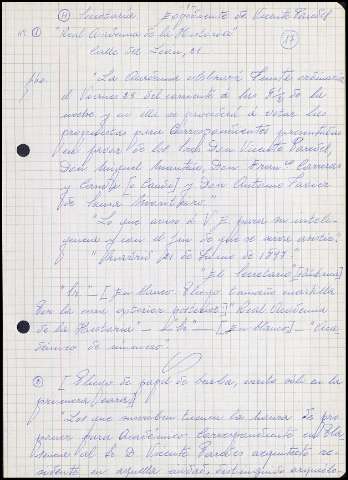 (4) Secretaría Expediente de Vicente Paredes
"Real Academia de la Historia"
Calle del León, 21
"La Academia celebrará Junta ordinaria
el Viernes 28 del corriente á las 8½ de la
noche y en ella se procederá á votar las
propuestas para Correspondientes presentadas
en favor de los Sres Don Vicente Paredes,
Don Miguel Don Carreras
y [o Candi] y Don Antonio Xavier
de
"Lo que aviso á V. E. para su inteli-
gencia y con el fin de que se sirva asistir"
"Madrid 21 de de 1899.
El Secretario"
[En blanco. Pliego tamaño cuartilla
Real Academia
de la Historia" [En blanco] "Aca-
démico de número"
[Pliego de papel de barba, escrito sólo en la
primera cara]
"Los que suscriben tienen la honra de pro
poner para Académico Correspondiente en Pla
sencia al Sr D. Vicente Paredes arquitecto re-
sidente en aquella ciudad, distinguido arqueólo-